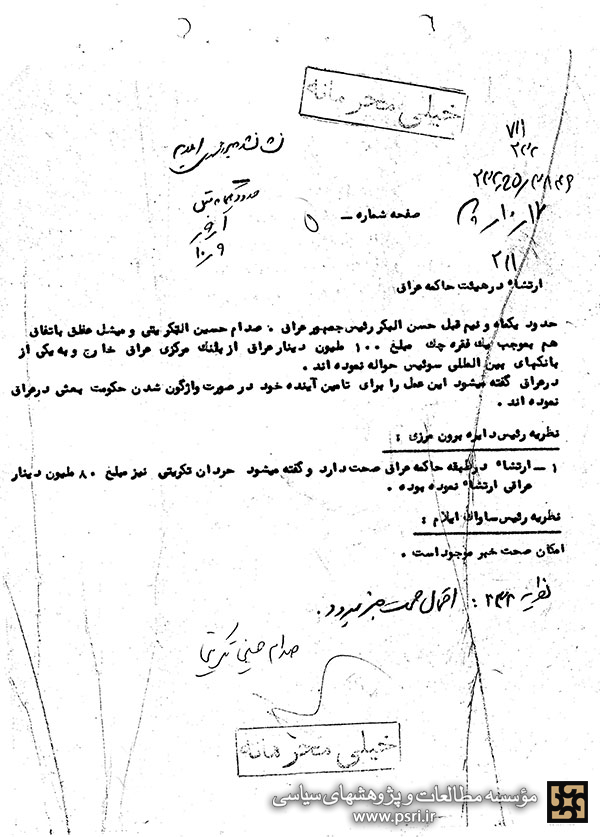 خیلی محرمانه
۷۱۱
۲۳۲
صفحه شماره ـ ۵
۲۱۱
ارتشاء در هیئت حاکمه عراق
حدود یکماه و نیم قبل حسن البکر رئیس جمهور عراق ، صدام حسین التکریتی و میشل عفلق باتفاق
هم بموجب یک فقره چک مبلغ ۱۰۰ ملیون دینار عراق از بانک مرکزی عراق خارج و به یکی از
بانکهای بین المللی سوئیس حواله نموده اند .
در عراق گفته میشود این عمل را برای تامین آینده خود در صورت واژگون شدن حکومت بعث در عراق
نموده اند .
نظریه رئیس دایره برون مرزی :
۱ ـ ارتشاء در طبقه حاکمه عراق صحت دارد و گفته میشود حردان تکریتی نیز مبلغ ۸۰ ملیون دینار
عراقی ارتشاء نموده بوده .
نظریه رئیس ساواک ایلام :
امکان صحت خبر موجود است .
نظریه ۲۳۲ : احتمال صحت خبر میرود .
صدام حسین تکریتی
خیلی محرمانه
مؤسسه مطالعات و پژوهشهای سیاسی
www.psri.ir